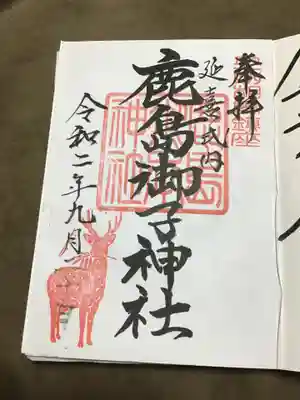 奉拝
延喜式内
鹿島御子神社
令和二年九月